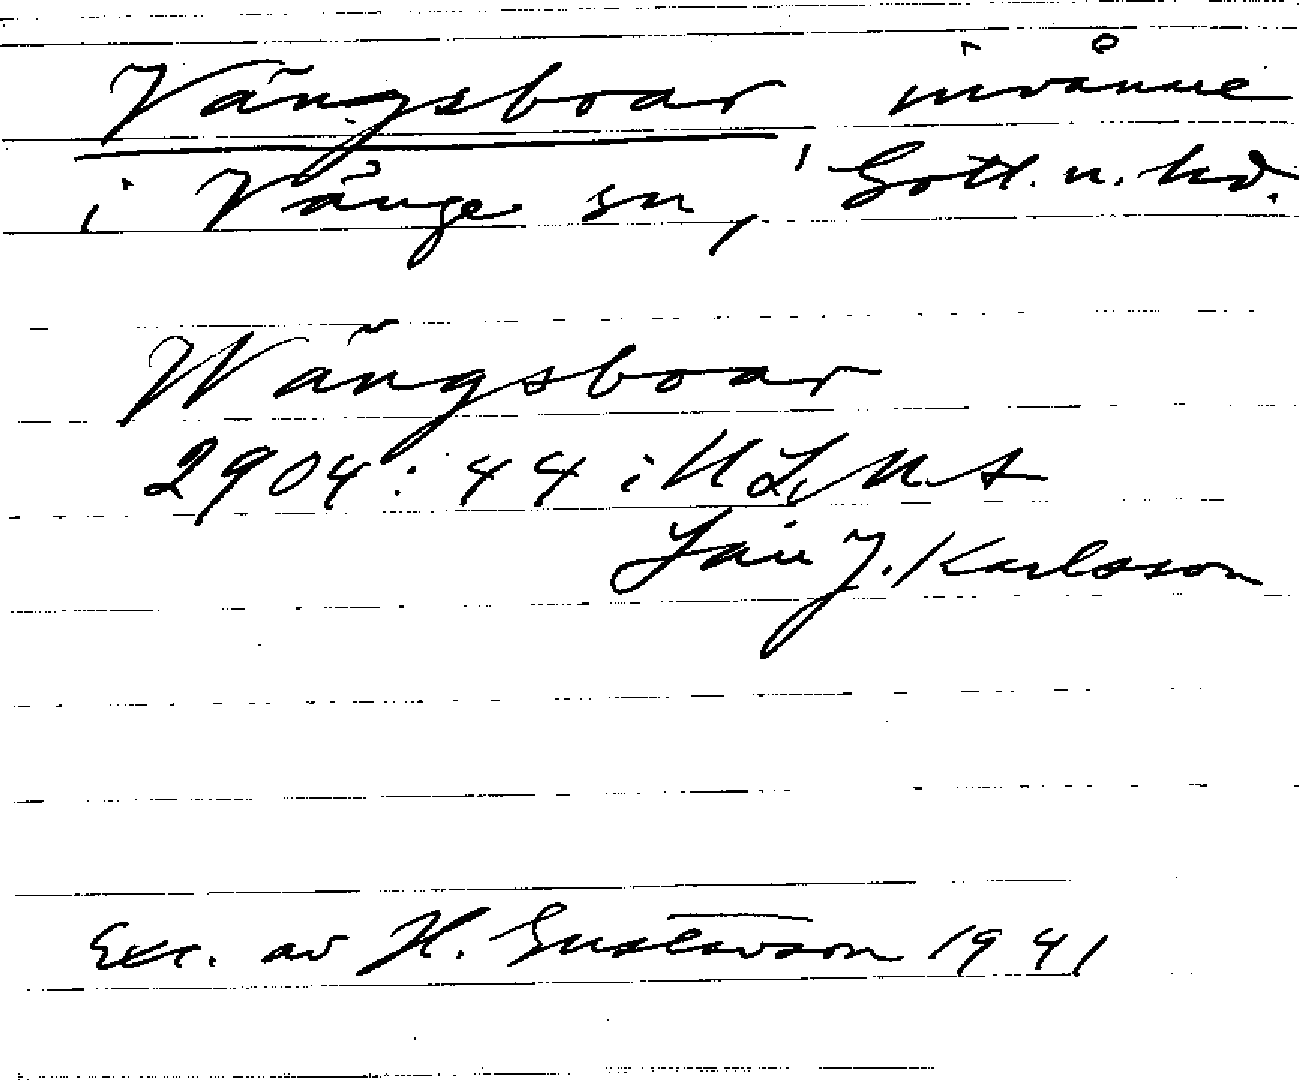 Vängsboar invånare
i Vänge sn, Gotl. n. hd.
Wängsboar
2904:44 i ULMA
J. Karlsson
Exc. av H. Gustavson 1941